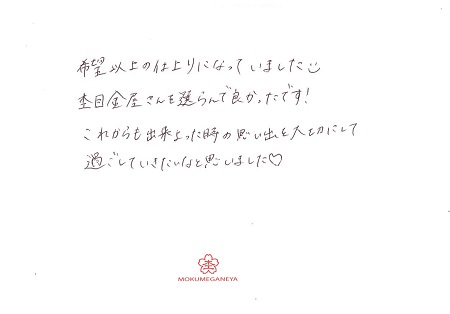 希望以上の仕上りになっていました☺
杢目金屋さんを選らんで良かったです！
これからも出来上った時の思い出を大切にして
過ごしていきたいなと思いました♡
杢
MOKUMEGANEYA